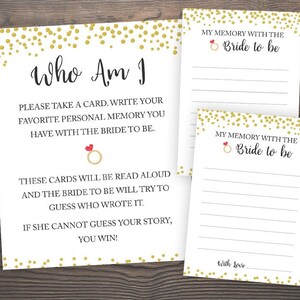 Who Am I
PLEASE TAKE A CARD. WRITE YOUR
FAVORITE PERSONAL MEMORY YOU
HAVE WITH THE BRIDE TO BE.
THESE CARDS WILL BE READ ALOUD
AND THE BRIDE TO BE WILL TRY TO
GUESS WHO WROTE IT.
IF SHE CANNOT GUESS YOUR STORY,
YOU WIN!
MY MEMORY WITH THE
Bride to be
MY MEMORY WITH THE
Bride to be
With Love